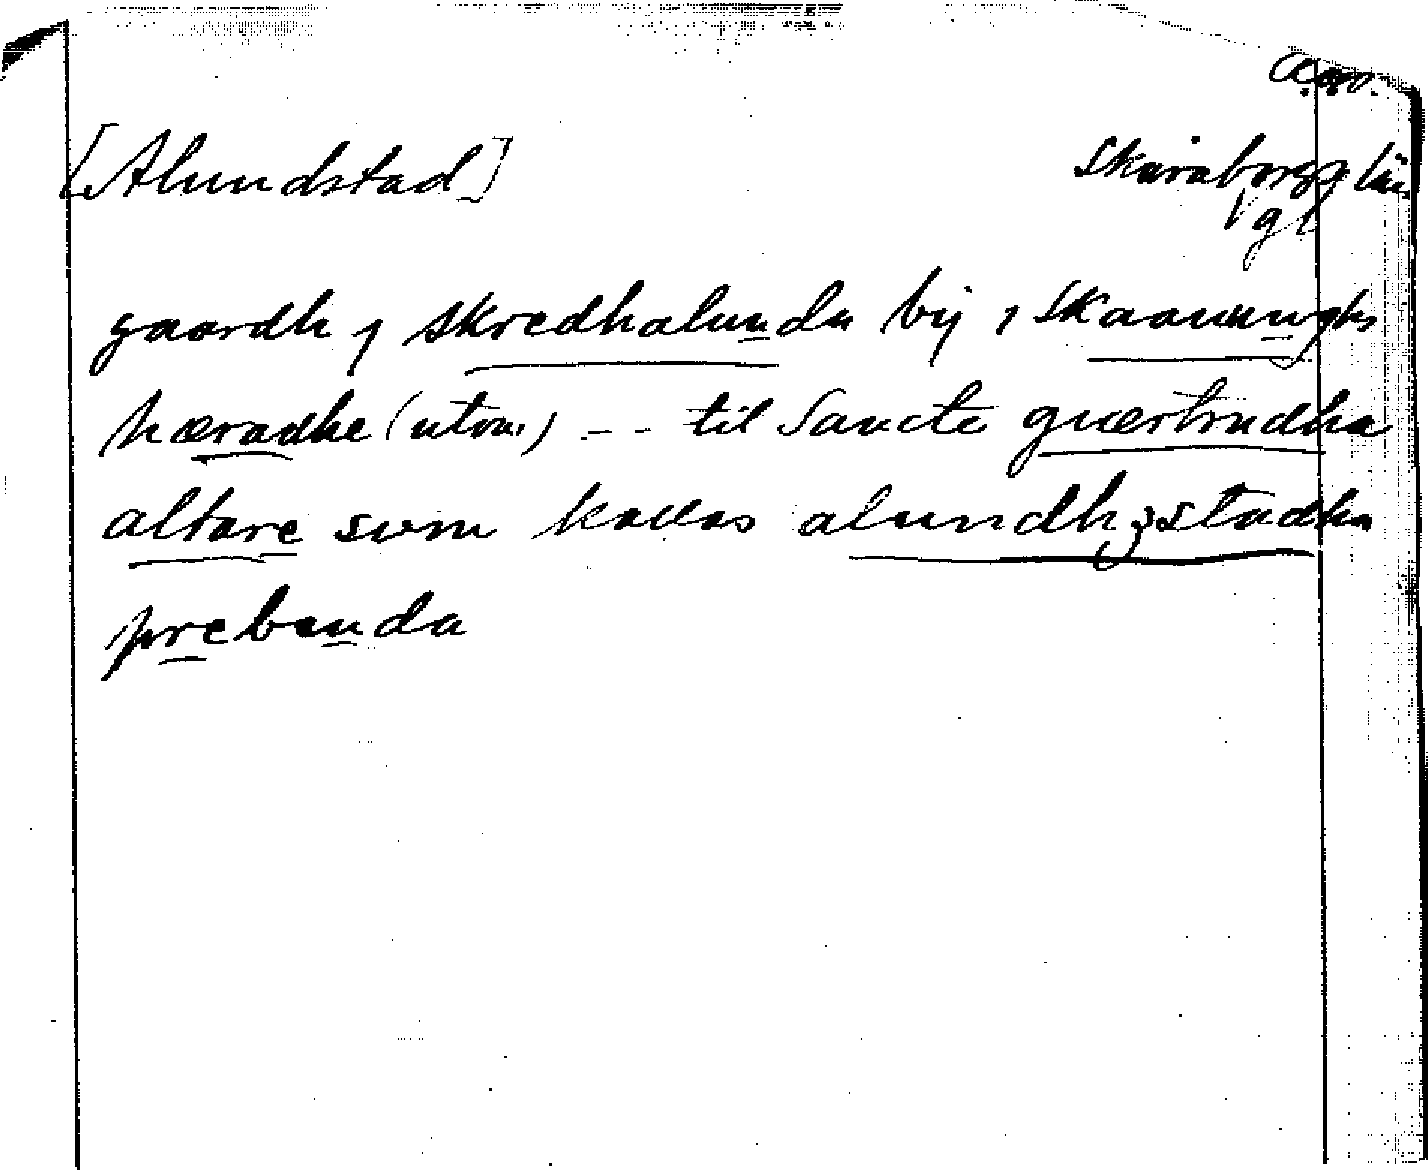 [Alundstad]
Skaraborgs län
Vgl
gaardh j skredhalunda bij j skaanungxs
hæradhe (utan) -- til Sancte giærtrudha
altare som kallas alundhzstadha
prebenda